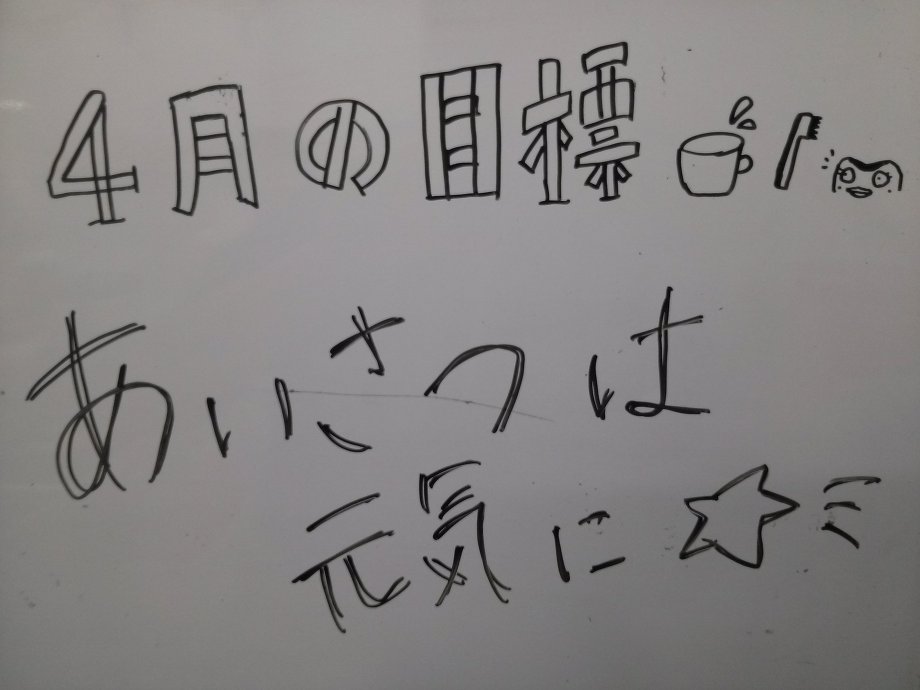 4月の目標
あいさつは
元気に☆ミ